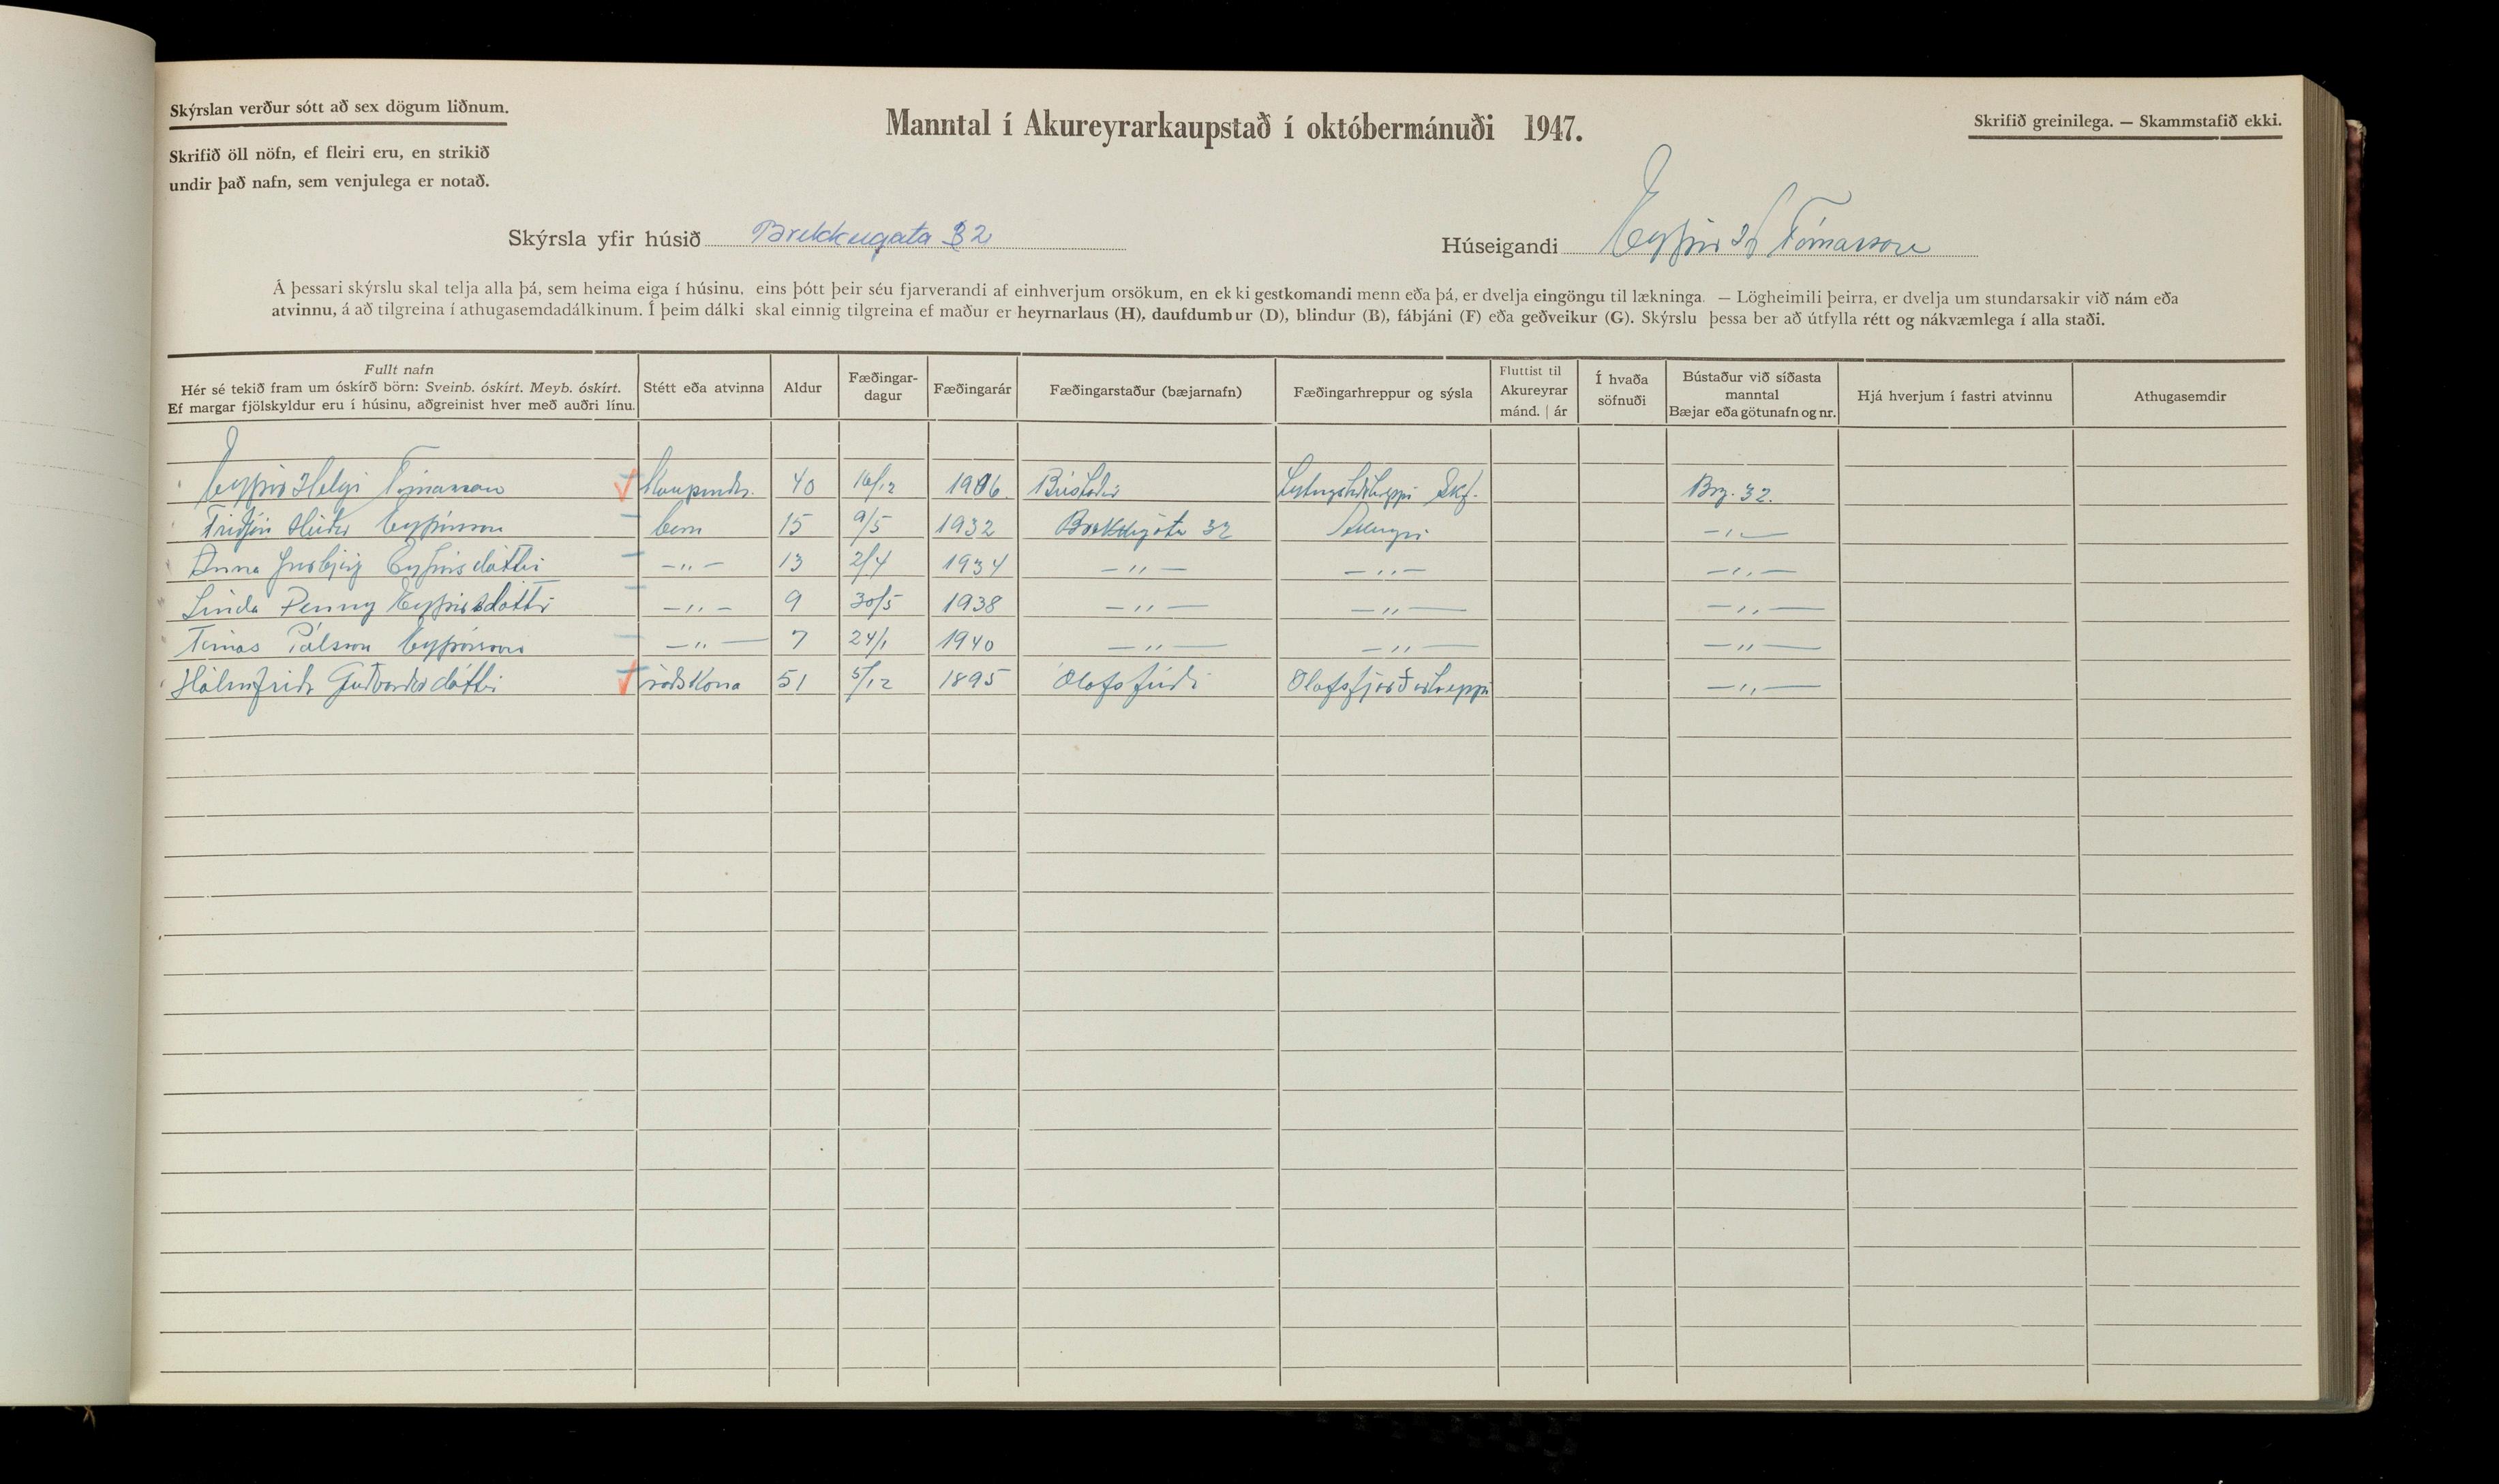 Skýrslan verður sótt að sex dögum liðnum.
Skrifið öll nöfn, ef fleiri eru, en strikið
undir það nafn, sem venjulega er notað.
Manntal í Akureyrarkaupstað í októbermánuði 1947.
Skrifið greinilega. — Skammstafið ekki.
Skýrsla yfir húsið Brekkugata 32
Húseigandi Eyþór H Tómasson
Á þessari skýrslu skal telja alla þá, sem heima eiga í húsinu, eins þótt þeir séu fjarverandi af einhverjum orsökum, en ekki gestkomandi menn eða þá, er dvelja eingöngu til lækninga. — Lögheimili þeirra, er dvelja um stundarsakir við nám eða
atvinnu, á að tilgreina í athugasemdadálkinum. Í þeim dálki skal einnig tilgreina ef maður er heyrnarlaus (H), daufdumbur (D), blindur (B), fábjáni (F) eða geðveikur (G). Skýrslu þessa ber að útfylla rétt og nákvæmlega í alla staði.
Fullt nafn
Hér sé tekið fram um óskírð börn: Sveinb. óskírt. Meyb. óskírt.
Ef margar fjölskyldur eru í húsinu, aðgreinist hver með auðri línu.
Stétt eða atvinna
Aldur
Fæðingar-
dagur
Fæðingarár
Fæðingarstaður (bæjarnafn)
Fæðingarhreppur og sýsla
Fluttist til
Akureyrar
mánd. | ár
Í hvaða
söfnuði
Bústaður við síðasta
manntal
Bæjar eða götunafn og nr.
Hjá hverjum í fastri atvinnu
Athugasemdir
Eyþór Helgi Tómasson 40 16/12 1906 Skf. Brg. 32.
Friðjón Eyþórsson börn 15 9/5 1932 Brekkugötu 32 Akureyri —„—
Anna Eyþórsdóttir —„— 13 2/4 1934 —„— —„— —„—
Linda Penny Eyþórsdóttir —„— 9 30/5 1938 —„— —„— —„—
Tómas Pálsson Eyþórsson —„— 7 24/1 1940 —„— —„— —„—
Hólmfríðr Guðvarðsdóttir ráðskona 51 5/12 1895 Ólafsfirði Ólafsfjarðarhreppi —„—